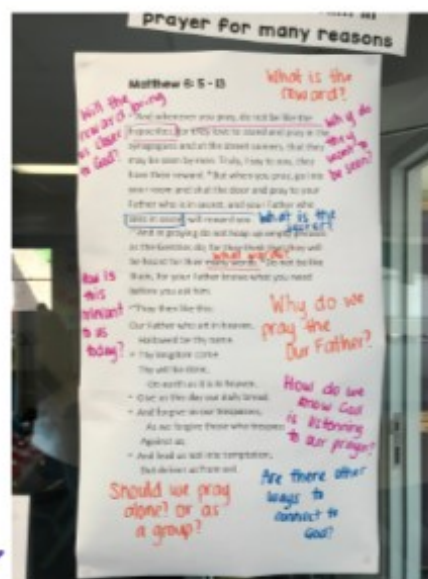 prayer for many reasons
Matthew 6: 5 - 13
What is the
reward?
Will the
reward bring
us closer
to God?
Why do
they
want to
be seen?
And whenever you pray, do not be like the
hypocrites for they love to stand and pray in the
synagogues and at the street corners, that they
may be seen by men. Truly, I say to you, they
have their reward. But when you pray, go into
your room and shut the door and pray to your
Father who is in secret, and your Father who
sees in secret will reward you.
What is the
secret?
And in praying do not heap up empty phrases
as the Gentiles do, for they think that they will
What words?
be heard for their many words. Do not be like
them, for your Father knows what you need
before you ask him.
How is
this
relevant
to us
today?
Pray then like this:
Our Father who art in heaven,
Hallowed be thy name.
Thy kingdom come
Thy will be done,
On earth as it is in heaven.
Give us this day our daily bread.
And forgive us our trespasses,
As we forgive those who trespass
Against us
And lead us not into temptation,
But deliver us from evil.
Why do we
pray the
Our Father?
How do we
know God
is listening
to our prayer?
Should we pray
alone? or as
a group?
Are there other
ways to
connect to
God?